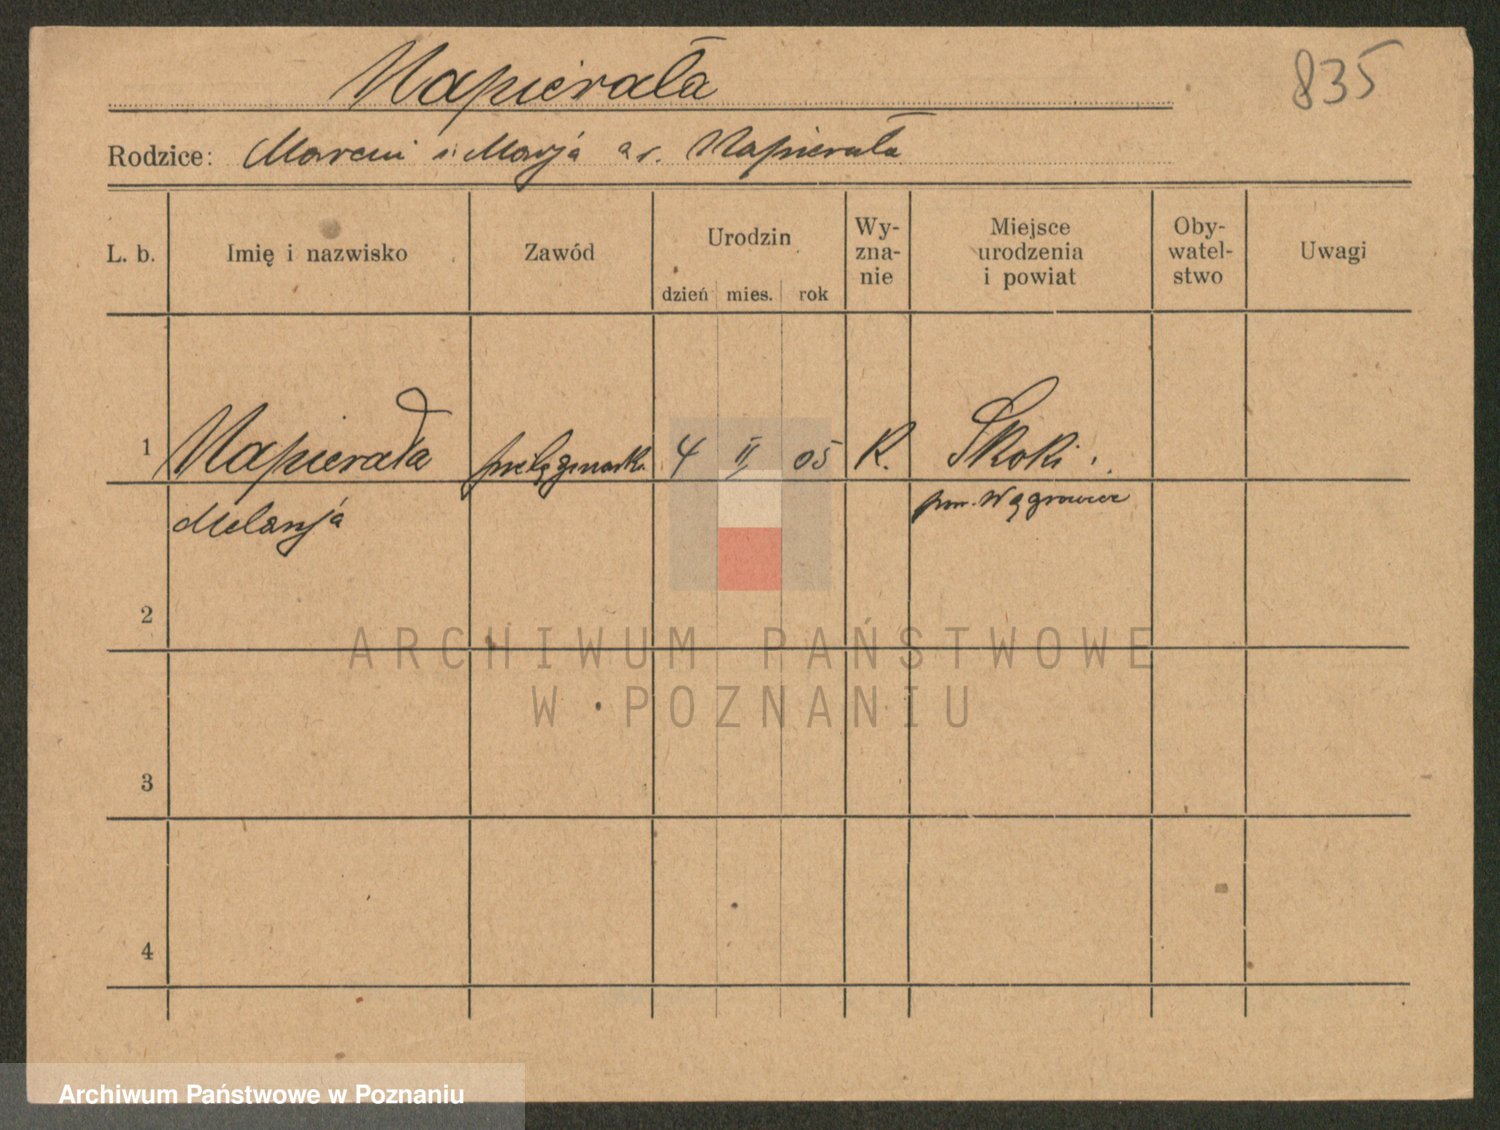 Napierała
835
Rodzice: Marcin i Marja ar. Napierała
L. b.
Imię i nazwisko
Zawód
Urodzin
dzień mies. rok
Wy-
zna-
nie
Miejsce
urodzenia
i powiat
Oby-
watel-
stwo
Uwagi
1 Napierała pielęgniark. 4 II 05 R. Skoki.
Melanja pow. Wągrowiec
2
3
4
ARCHIWUM PAŃSTWOWE
W POZNANIU
Archiwum Państwowe w Poznaniu